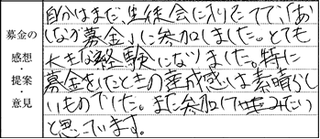 募金の
感想
・
提案
・
意見
自分はまだ、生徒会に入りたてで、「あ
しなが募金」に参加しました。とても
大きな経験になりました。特に
募金をしたときの達成感は素晴らし
いものでした。また参加してみたい
と思っています。